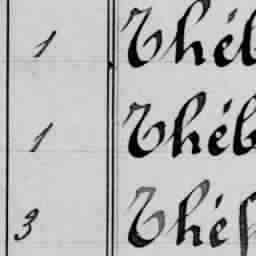 1 Théb
1 Théb
3 Thé